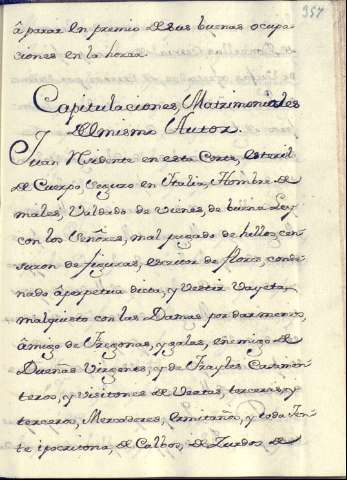 357
â parar en premio de sus buenas ocupa
ciones en la horca.
Capitulaciones, Matrimoniales
del mismo Autor.
Juan Residente en esta Corte, esteril
de Cuerpo, seguro en Italia, Hombre de
males, Valdado de vienes, de buena Ley
con los Señores, mal pagado de hellos, cen
suron de figuras, escritor de flores, conde
nado âperpetua dieta, y vestir vayeta,
malquisto con las Damas por dar menos,
âmigo de Fregonas, y galas, enemigo de
Dueñas Virgenes, y de Frayles Casamen
teros, y visitones de Veatas, terceras, y
terceros, Mercadores, Ermitaños, y toda Jen
te ipocritona, de Calbos, de Zurdos de